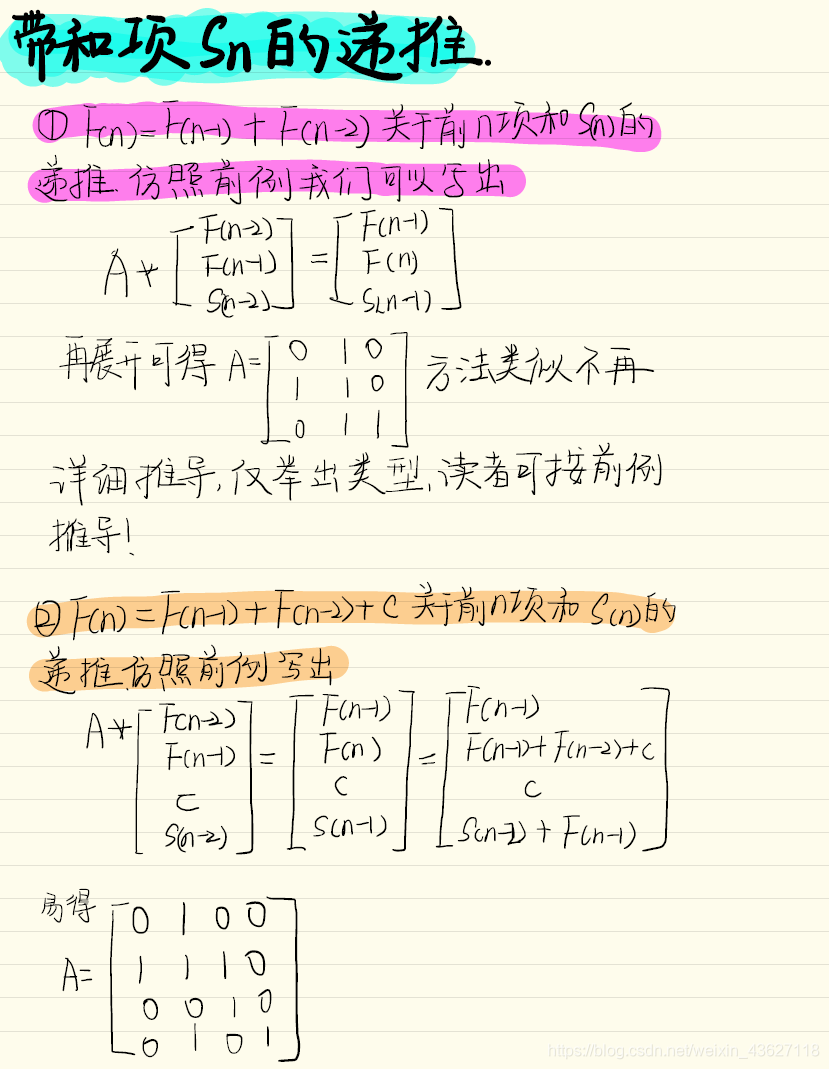 带和项Sn的递推.
① F(n)=F(n-1)+F(n-2)关于前n项和S(n)的
递推.仿照前例我们可以写出
A * [F(n-2) F(n-1) S(n-2)] = [F(n-1) F(n) S(n-1)]
再展开可得 A= [0 1 0 1 1 0 0 1 1] 方法类似不再
详细推导,仅举出类型,读者可按前例
推导!
② F(n)=F(n-1)+F(n-2)+C 关于前n项和S(n)的
递推.仿照前例写出
A * [F(n-2) F(n-1) C S(n-2)] = [F(n-1) F(n) C S(n-1)] = [F(n-1) F(n-1)+F(n-2)+C C S(n-2)+F(n-1)]
易得
A= [0 1 0 0 1 1 1 0 0 0 1 0 0 1 0 1]
https://blog.csdn.net/weixin_43627118